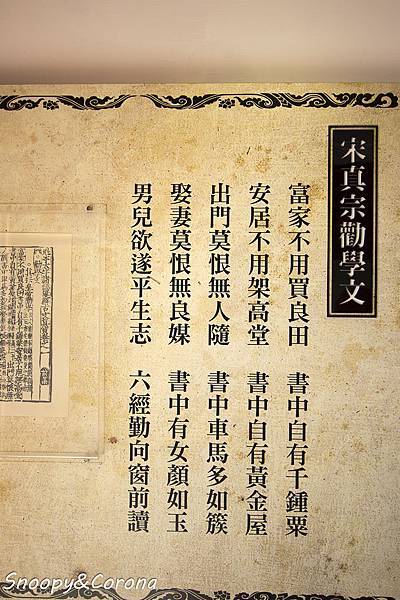 宋真宗勸學文
富家不用買良田　書中自有千鍾粟
安居不用架高堂　書中自有黃金屋
出門莫恨無人隨　書中車馬多如簇
娶妻莫恨無良媒　書中有女顏如玉
男兒欲遂平生志　六經勤向窗前讀
Snoopy&Corona